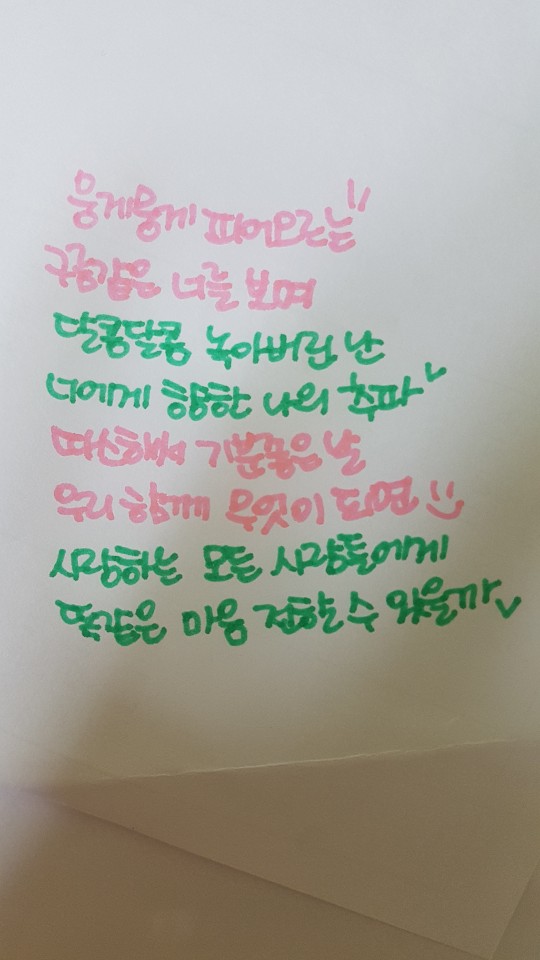 뭉게뭉게 피어오르는
구름같은 너를 보며
달콤달콤 녹아버린 난
너에게 향한 나의 추파
따스해서 기분좋은 날
우리 함께 무엇이 되면
사랑하는 모든 사람들에게
똑같은 마음 전할 수 있을까